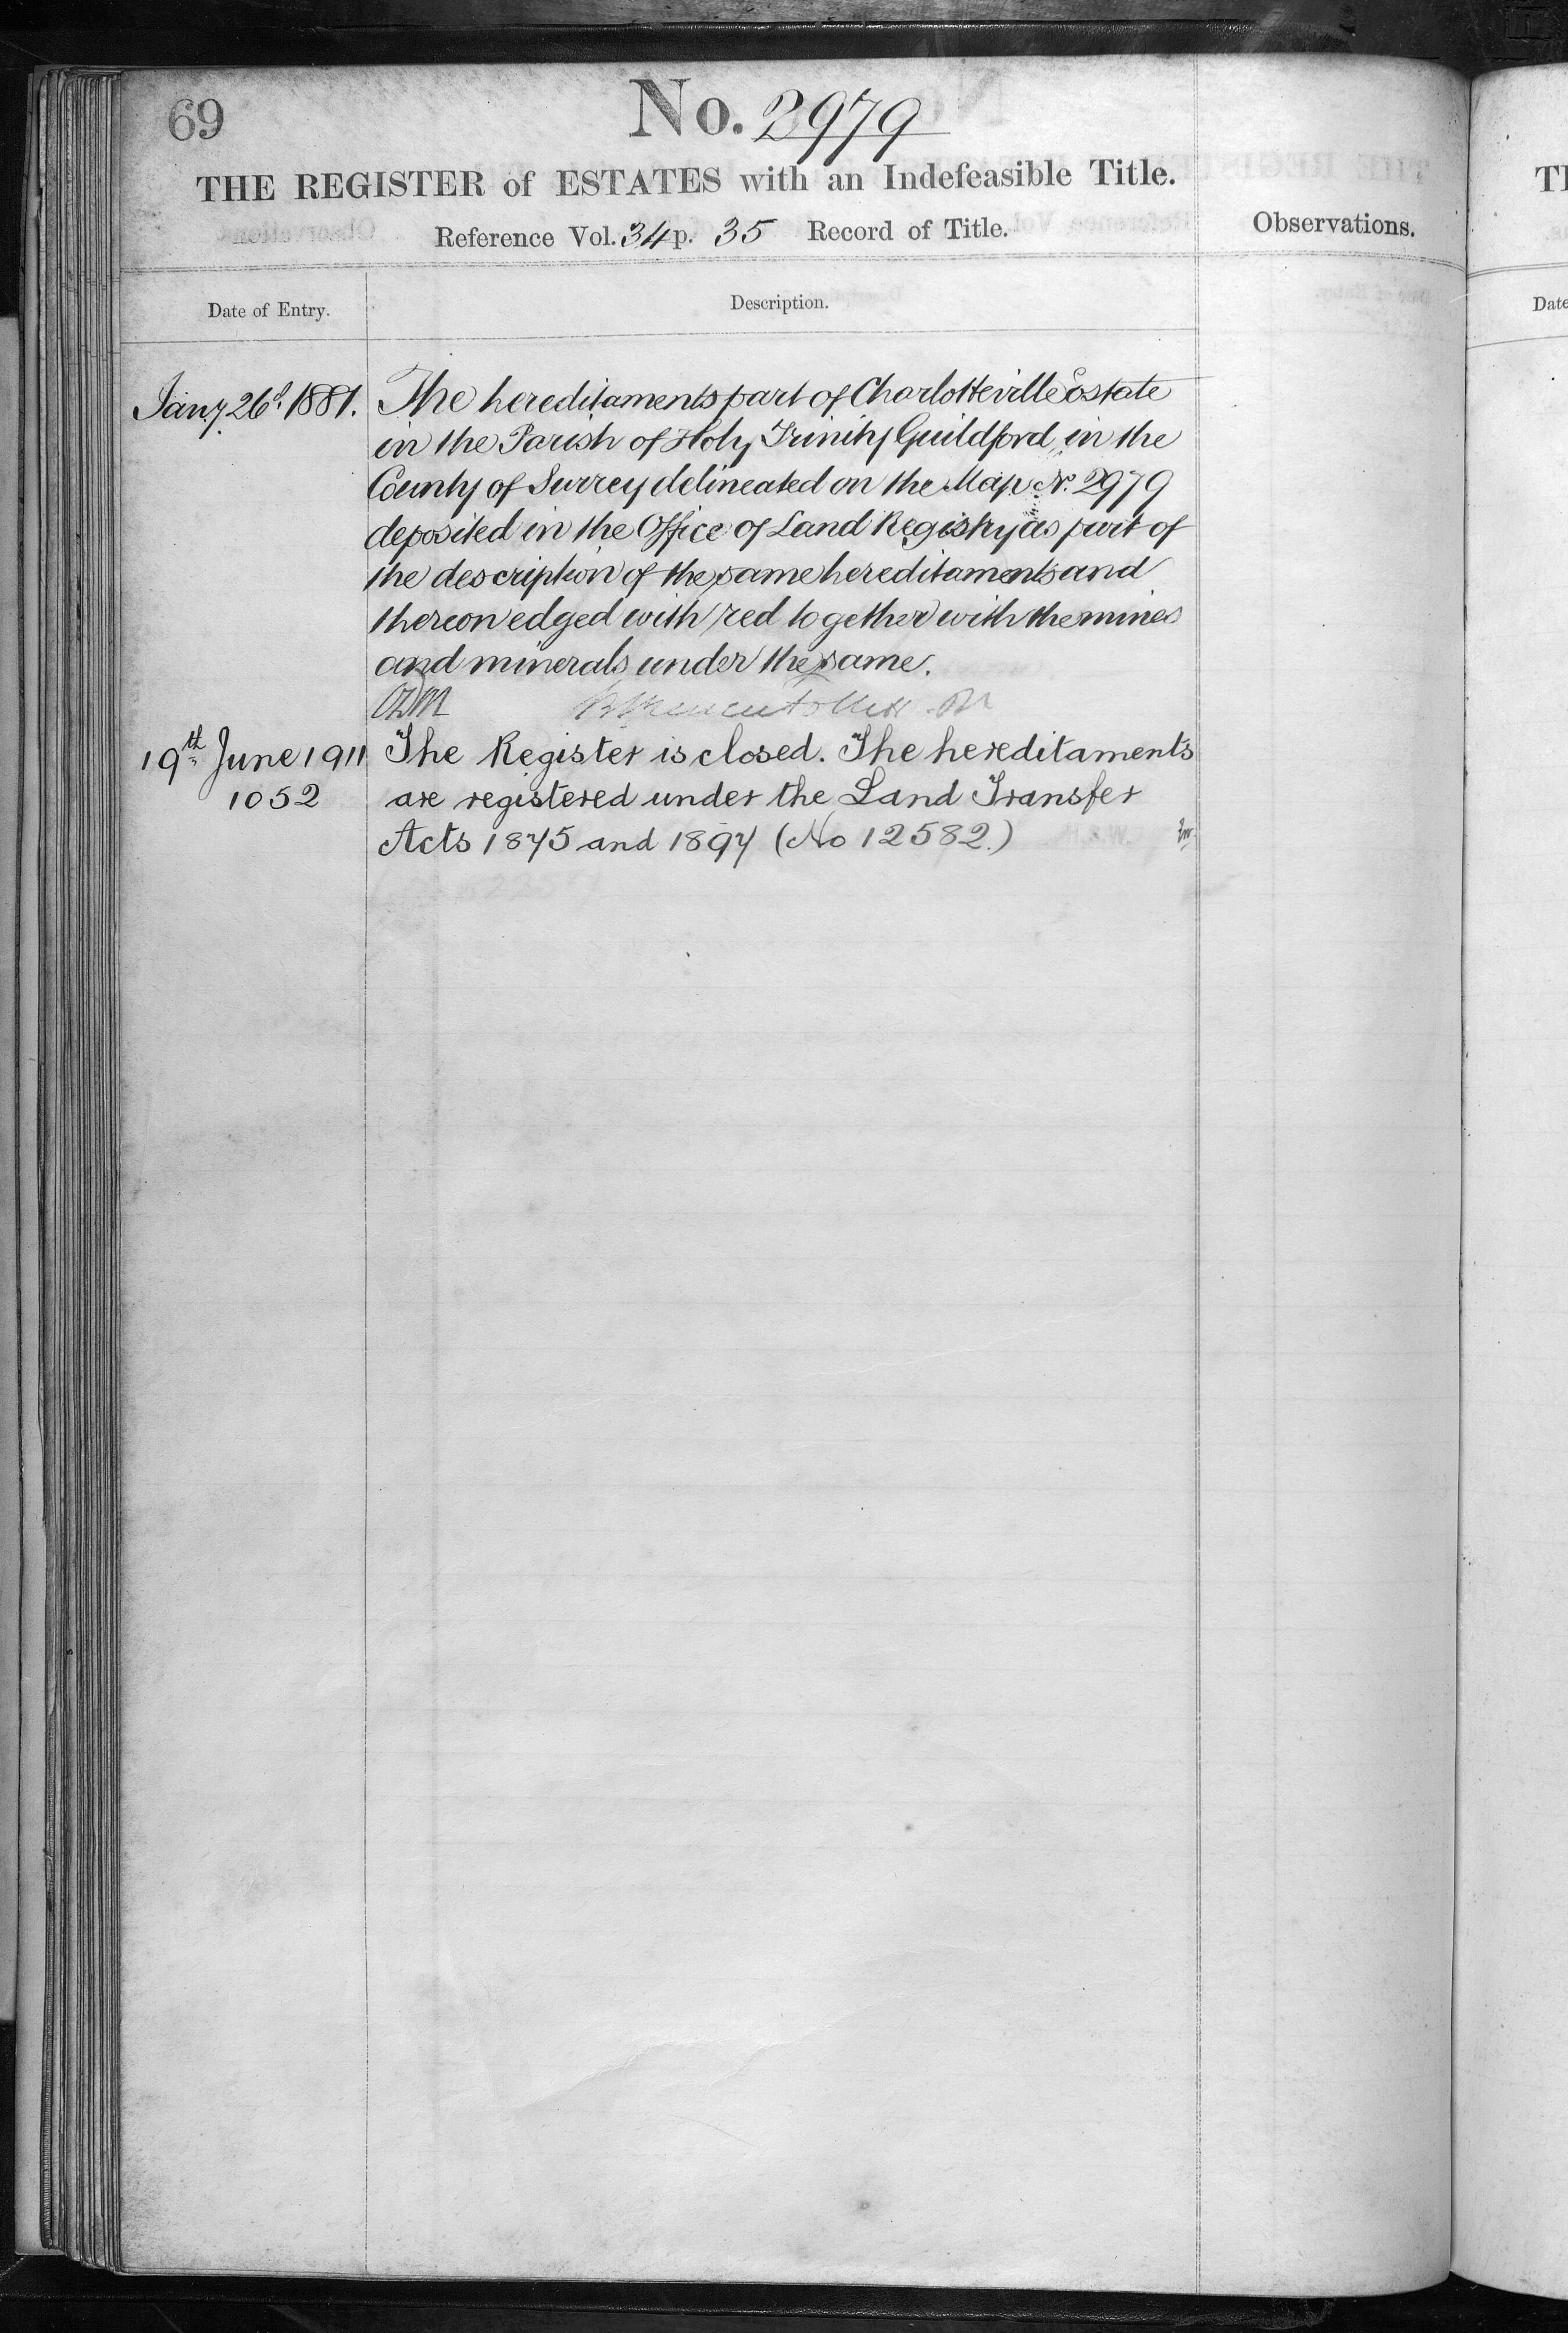 69
No. 2979
THE REGISTER of ESTATES with an Indefeasible Title.
Reference Vol. 34 p. 35 Record of Title.
Observations.
Date of Entry.
Description.
Jany. 26th 1881.
The hereditaments part of Charlotteville Estate
in the Parish of Holy Trinity Guildford, in the
County of Surrey delineated on the Map No. 2979
deposited in the Office of Land Registry as part of
the description of the same hereditaments and
thereon edged with red together with the mines
and minerals under the same.
19th June 1911
1052
The Register is closed. The hereditaments
are registered under the Land Transfer
Acts 1875 and 1897 (No 12582.)
Date